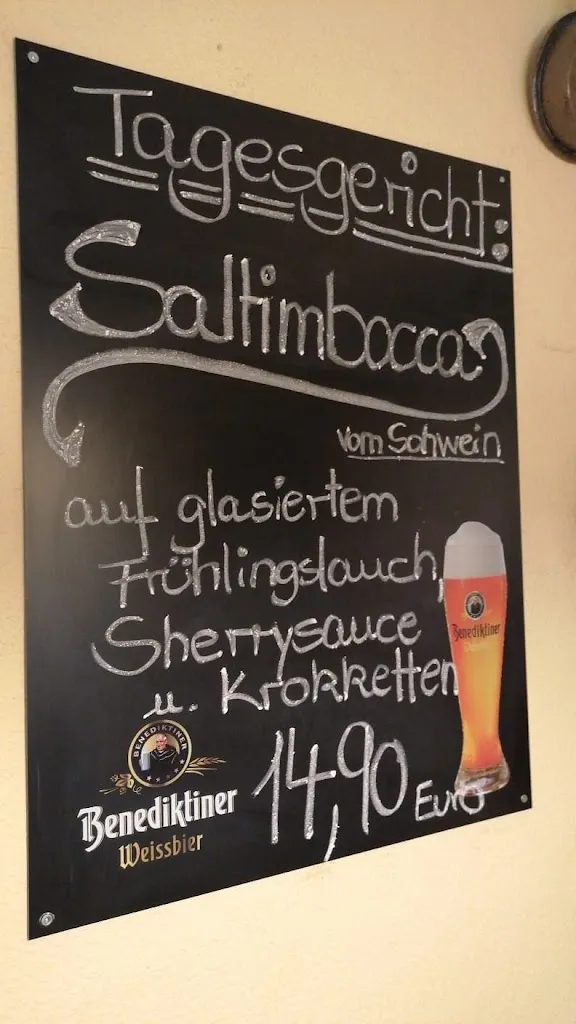 Tagesgericht:
Saltimbocca
vom Schwein
auf glasiertem
Frühlingslauch,
Sherrysauce
u. Krokketten
14,90 Euro
Benediktiner
BENEDIKTINER
Benediktiner
Weissbier